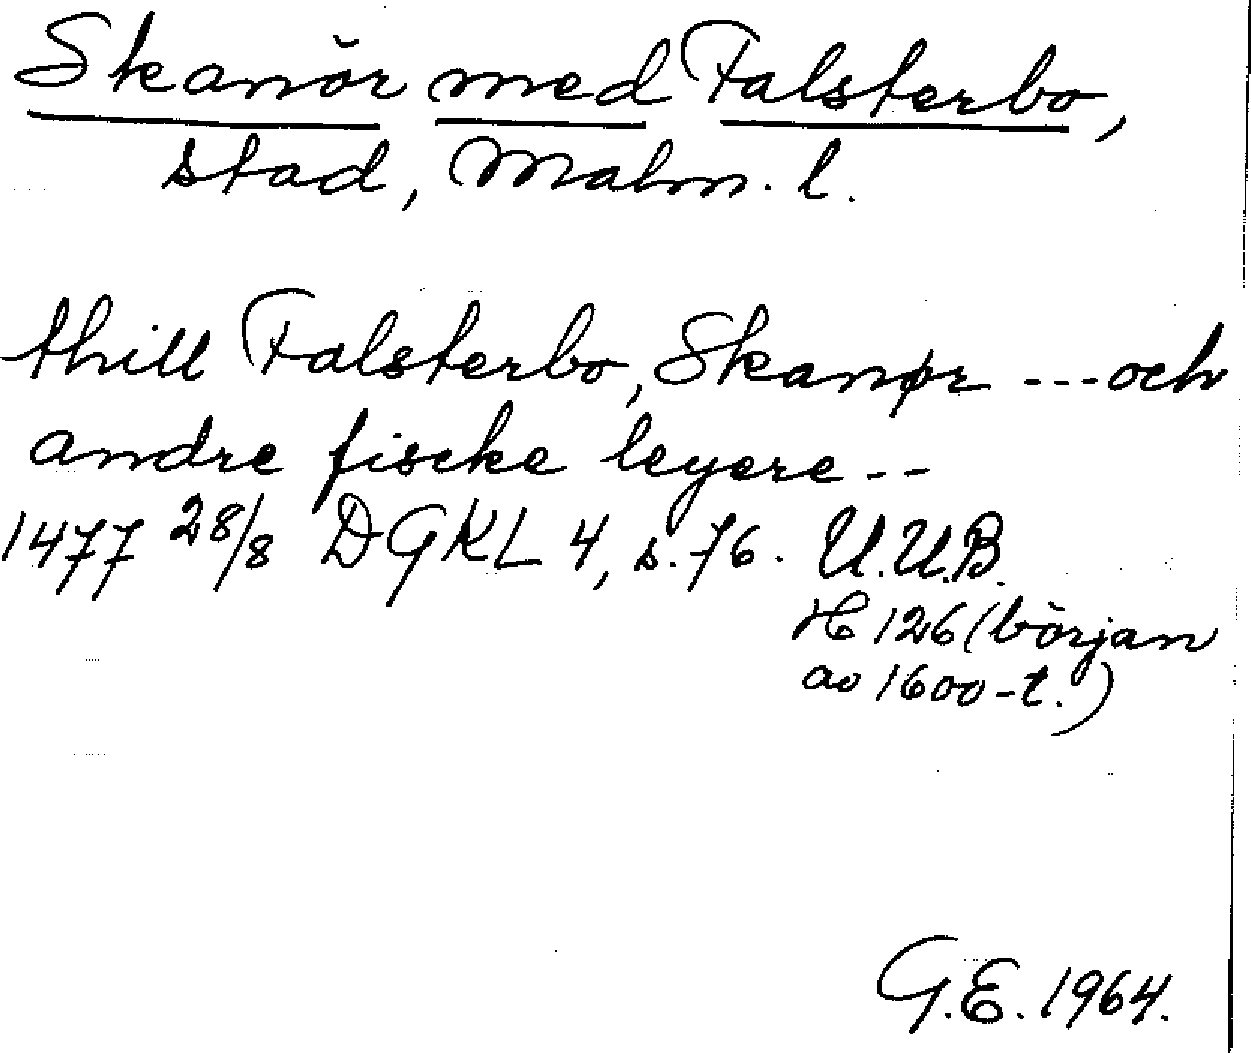 Skanör med Falsterbo,
stad, Malm. l.
thill Falsterbo, Skanør --- och
andre fiscke leyere --
1477 28/8 DGKL 4, s. 76. U.U.B.
H 126 (början
av 1600-t.)
G.E. 1964.